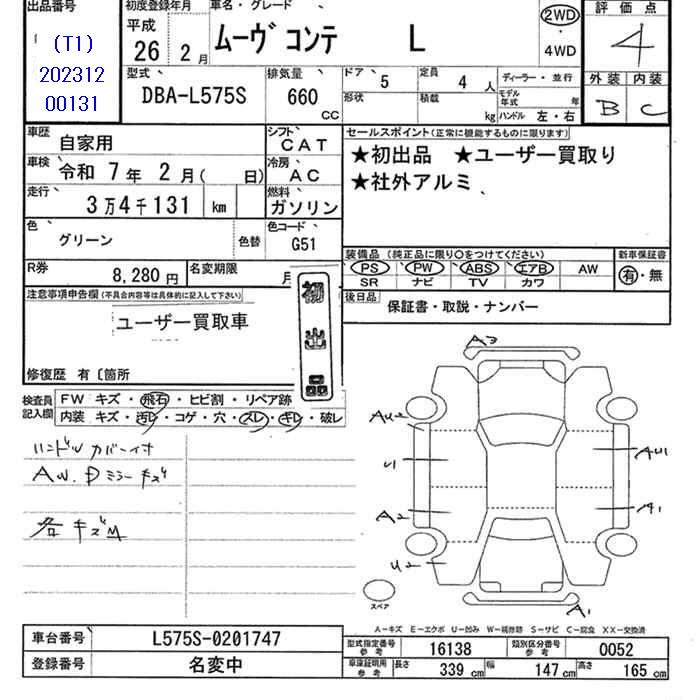 出品番号
(T1)
202312
00131
初度登録年月
平成
26年 2月
車名・グレード
ムーヴ コンテ L
2WD
・
4WD
評価点
4
外装 内装
B C
型式
DBA-L575S
排気量
660 CC
ドア 5
形状
定員 4 人
積載 kg
ディーラー・並行
モデル年式 年
ハンドル 左・右
車歴 自家用
シフト CAT
車検 令和 7年 2月( 日)
冷房 AC
走行 3万4千131 km
燃料 ガソリン
色 グリーン
色替
色コード G51
R券 8,280円
名変期限 月
セールスポイント(正常に機能するものに限ります)
★初出品 ★ユーザー買取り
★社外アルミ
装備品 (純正品に限り○をつけてください)
PS PW ABS エアB AW
SR ナビ TV カワ
新車保証書
有・無
後日品 保証書・取説・ナンバー
注意事項申告欄(不具合内容等は具体的に記入して下さい)
ユーザー買取車
初出品
修復歴 有〔箇所
検査員記入欄
FW キズ・飛石・ヒビ割・リペア跡
内装 キズ・汚レ・コゲ・穴・スレ・キレ・破レ
ハンドルカバー付
AW.Dミラーキズ
各キズM
A3
AU2
U1
A2
U2
AU1
A1
A1
スペア
A-キズ E-エクボ U-凹み W-補修跡 S-サビ C-腐食 XX-交換済
車台番号 L575S-0201747
登録番号 名変中
型式指定番号 参考 16138
類別区分番号 参考 0052
車庫証明用 参考 長さ 339 cm 幅 147 cm 高さ 165 cm